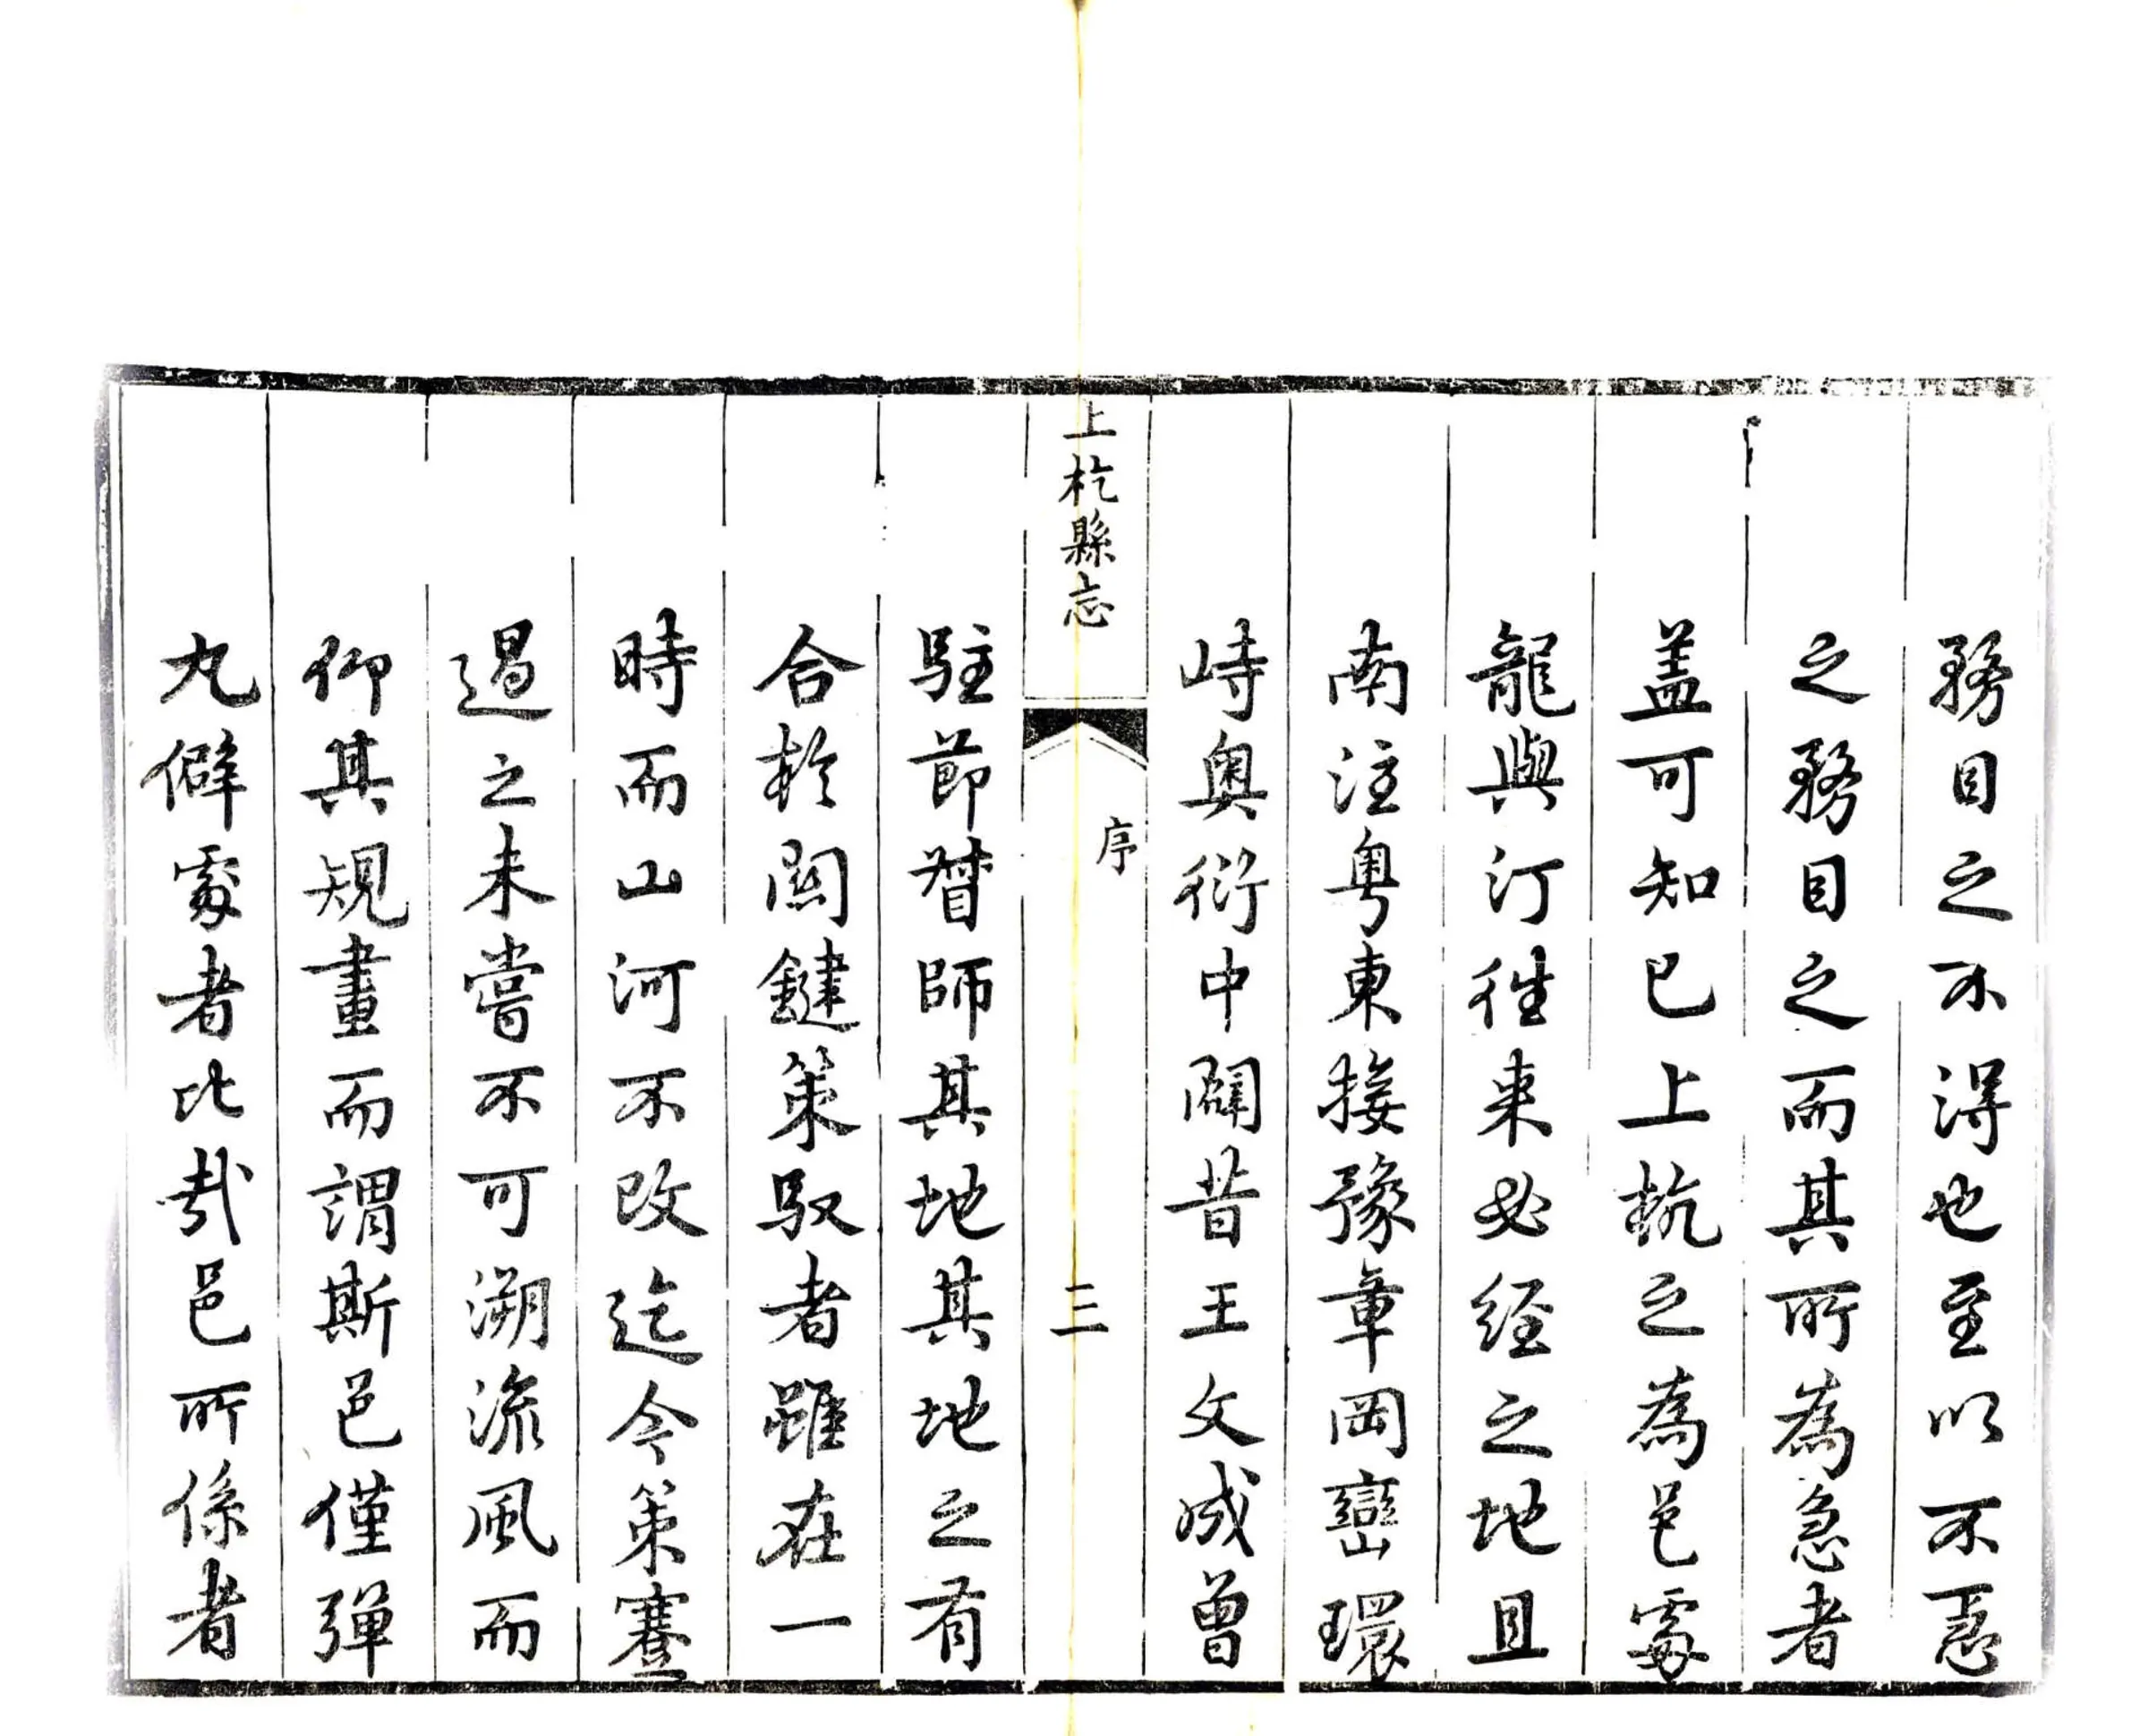 務目之不得也至以不急
之務目之而其所為急者
蓋可知已上杭之為邑處
龍與汀徃来必經之地且
南注粤東接豫章岡巒環
峙奧衍中闢昔王文成曾
上杭縣志
序
三
駐節督師其地其地之有
合於關鍵策馭者雖在一
時而山河不改迄今策蹇
過之未嘗不可溯流風而
仰其規畫而謂斯邑僅彈
丸僻處者比哉邑所係者